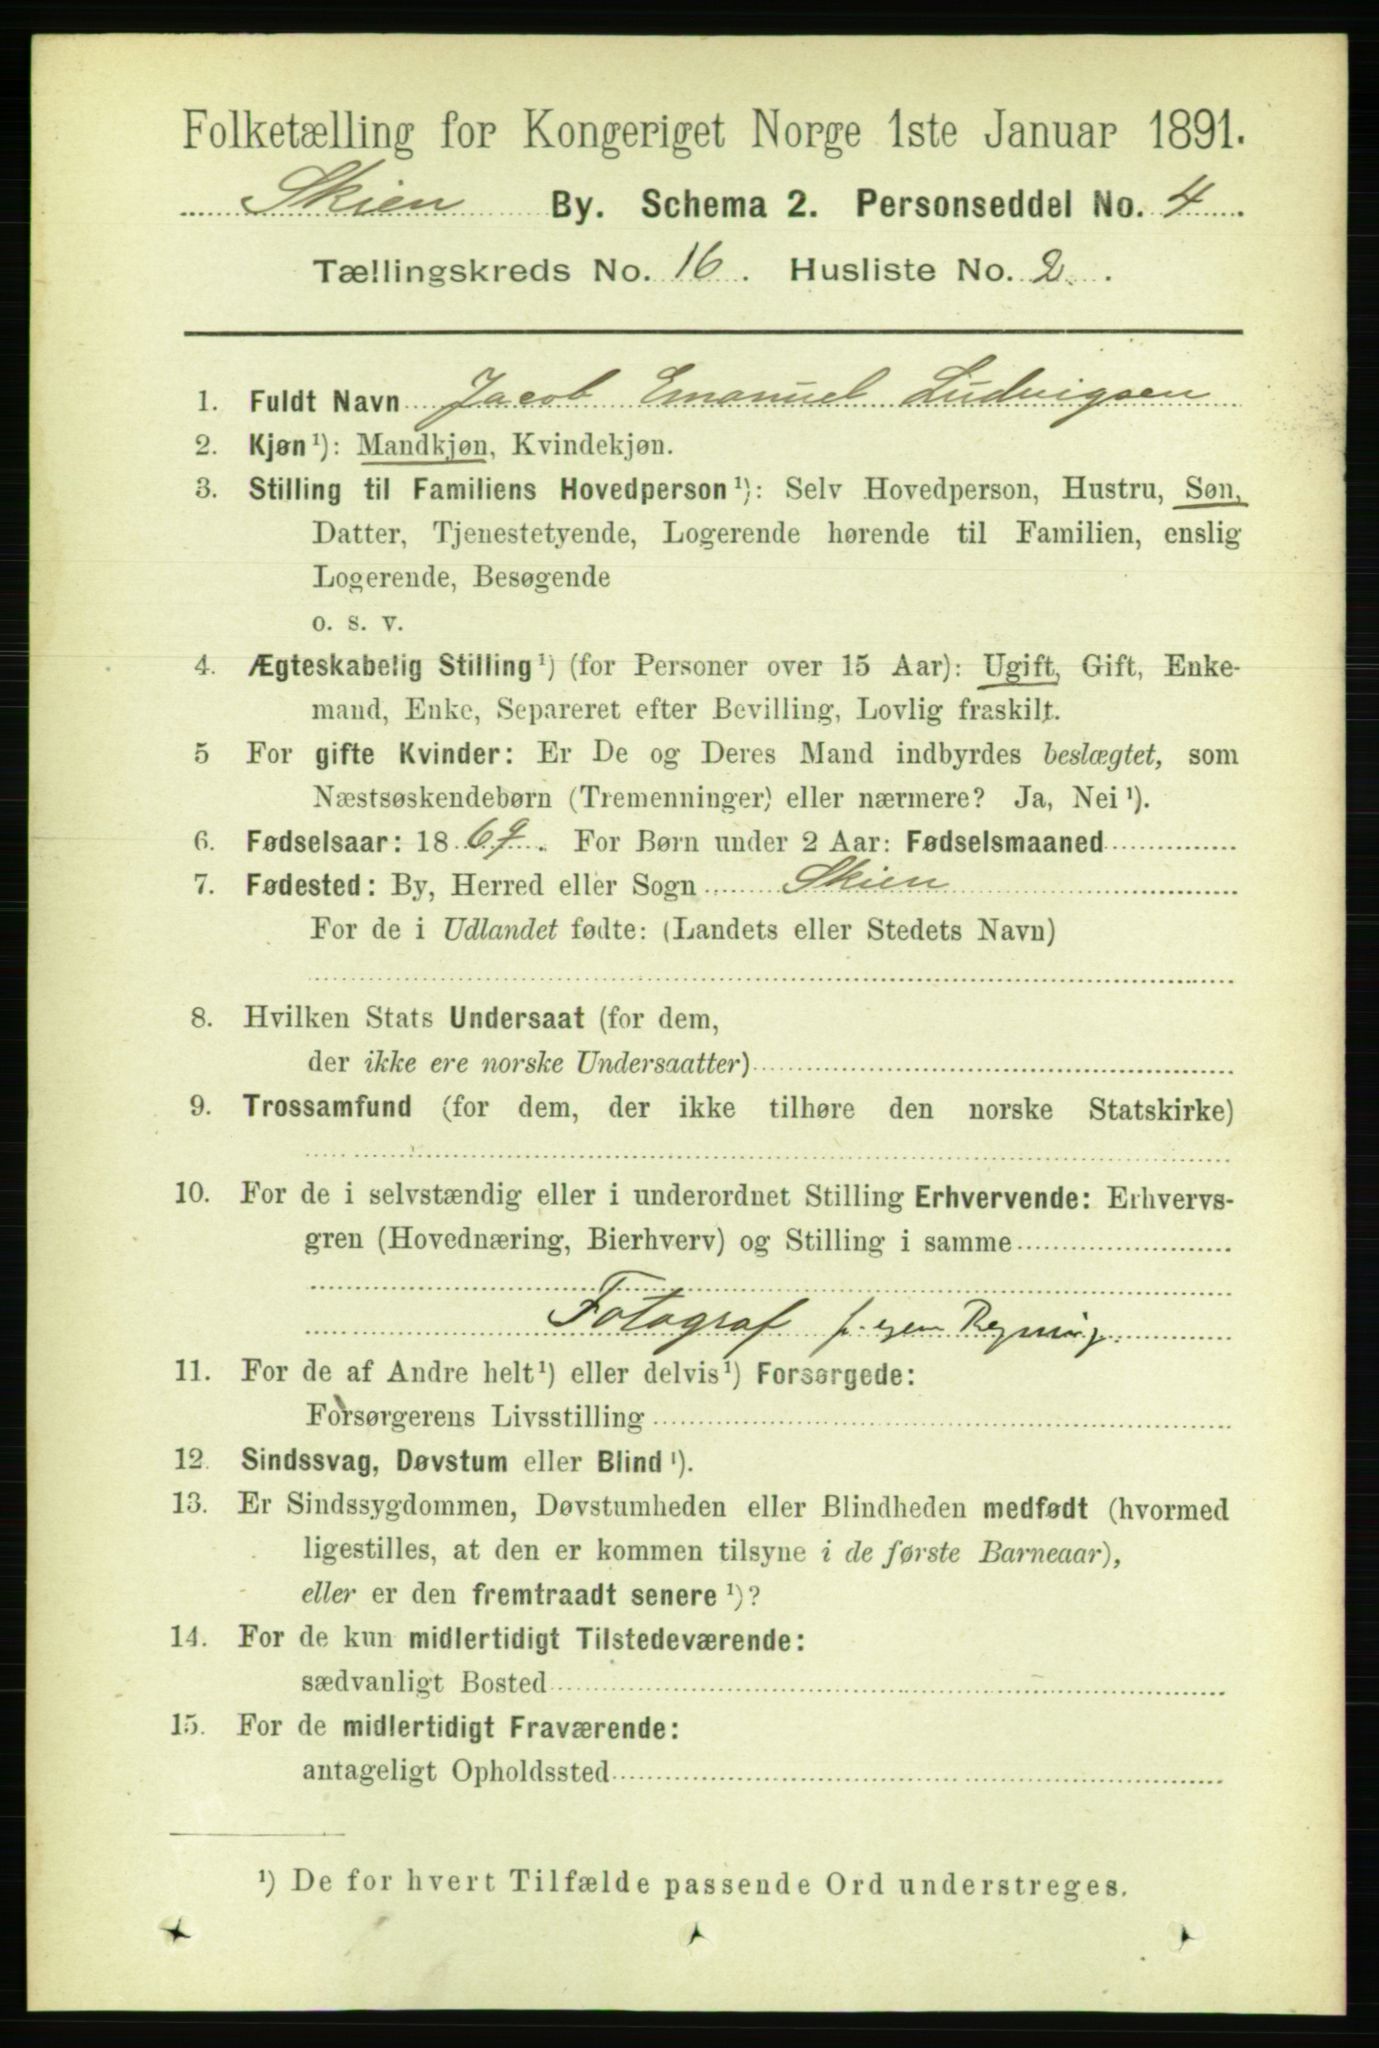 Folketælling for Kongeriget Norge 1ste Januar 1891.
Skien By. Schema 2. Personseddel No. 4
Tællingskreds No. 16. Husliste No. 2.
1. Fuldt Navn Jacob Emanuel Ludvigsen
2. Kjøn¹): Mandkjøn, Kvindekjøn.
3. Stilling til Familiens Hovedperson¹): Selv Hovedperson, Hustru, Søn,
Datter, Tjenestetyende, Logerende hørende til Familien, enslig
Logerende, Besøgende
o. s. v.
4. Ægteskabelig Stilling¹) (for Personer over 15 Aar): Ugift, Gift, Enke-
mand, Enke, Separeret efter Bevilling, Lovlig fraskilt.
5 For gifte Kvinder: Er De og Deres Mand indbyrdes beslægtet, som
Næstsøskendebørn (Tremenninger) eller nærmere? Ja, Nei¹).
6. Fødselsaar: 1869. For Børn under 2 Aar: Fødselsmaaned
7. Fødested: By, Herred eller Sogn Skien
For de i Udlandet fødte: (Landets eller Stedets Navn)
8. Hvilken Stats Undersaat (for dem,
der ikke ere norske Undersaatter)
9. Trossamfund (for dem, der ikke tilhøre den norske Statskirke)
10. For de i selvstændig eller i underordnet Stilling Erhvervende: Erhvervs-
gren (Hovednæring, Bierhverv) og Stilling i samme
Fotograf f. egen Regning.
11. For de af Andre helt¹) eller delvis¹) Forsørgede:
Forsørgerens Livsstilling
12. Sindssvag, Døvstum eller Blind¹).
13. Er Sindssygdommen, Døvstumheden eller Blindheden medfødt (hvormed
ligestilles, at den er kommen tilsyne i de første Barneaar),
eller er den fremtraadt senere¹)?
14. For de kun midlertidigt Tilstedeværende:
sædvanligt Bosted
15. For de midlertidigt Fraværende:
antageligt Opholdssted
¹) De for hvert Tilfælde passende Ord understreges.